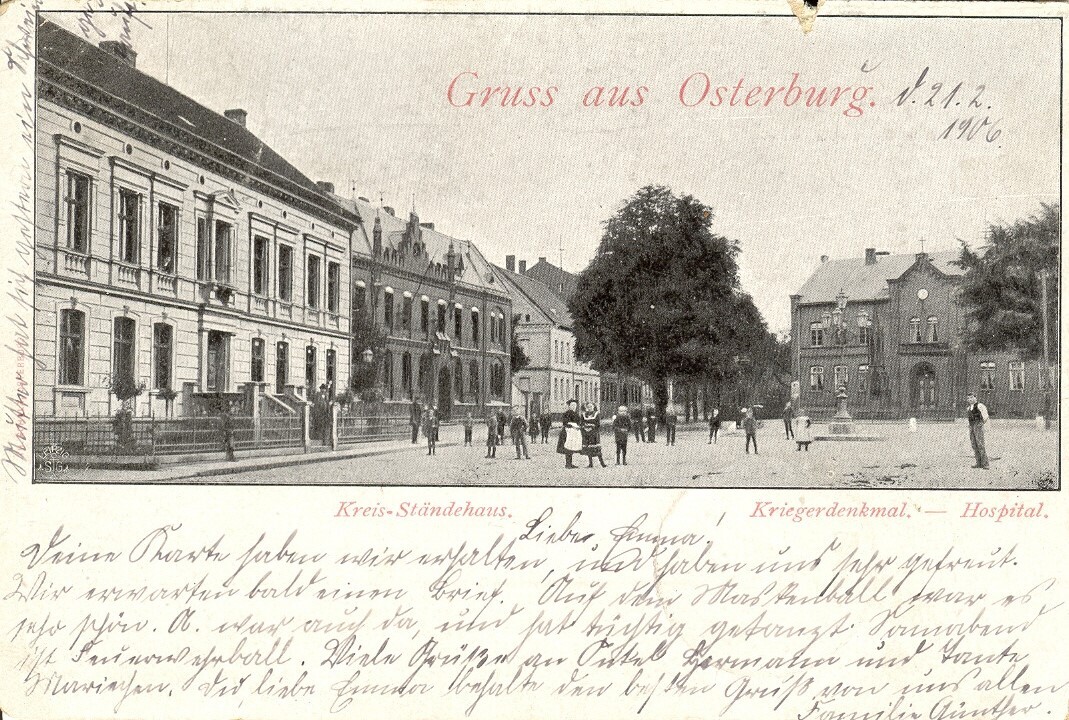 Gruss aus Osterburg.
d. 21. 2.
1906
Kreis-Ständehaus.
Kriegerdenkmal. — Hospital.
Liebe Emma!
Deine Karte haben wir erhalten, und haben uns sehr gefreut.
Wir erwarten bald einen Brief. Auf dem Maskenball war es
sehr schön. A. war auch da, und hat tüchtig getanzt. Sonnabend
ist Feuerwehrball. Viele Grüße an Onkel Hermann und Tante
Mariechen. Du, liebe Emma behalte den besten Gruß von uns allen
Familie Günther.
Mutter hat sich gestern ein